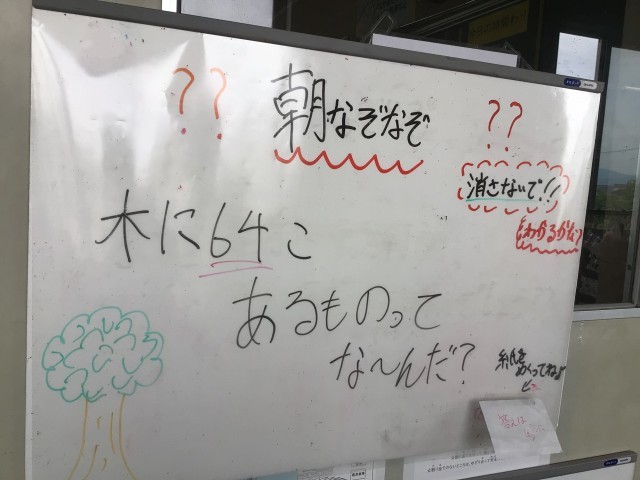 ??
朝なぞなぞ
??
消さないで!!
わかるかな?
木に64こ
あるものって
な〜んだ?
紙を
めくってねよ
答えは